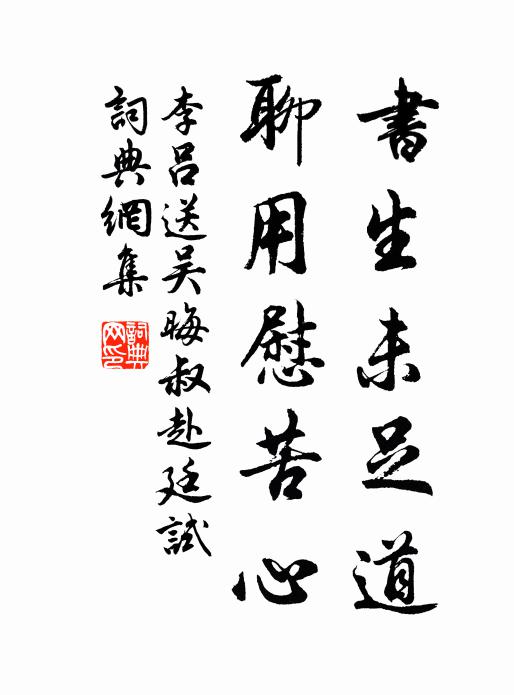 書生未足道
聊用慰苦心
李呂送吴晦叔赴廷試
詞典網集
詞典網印